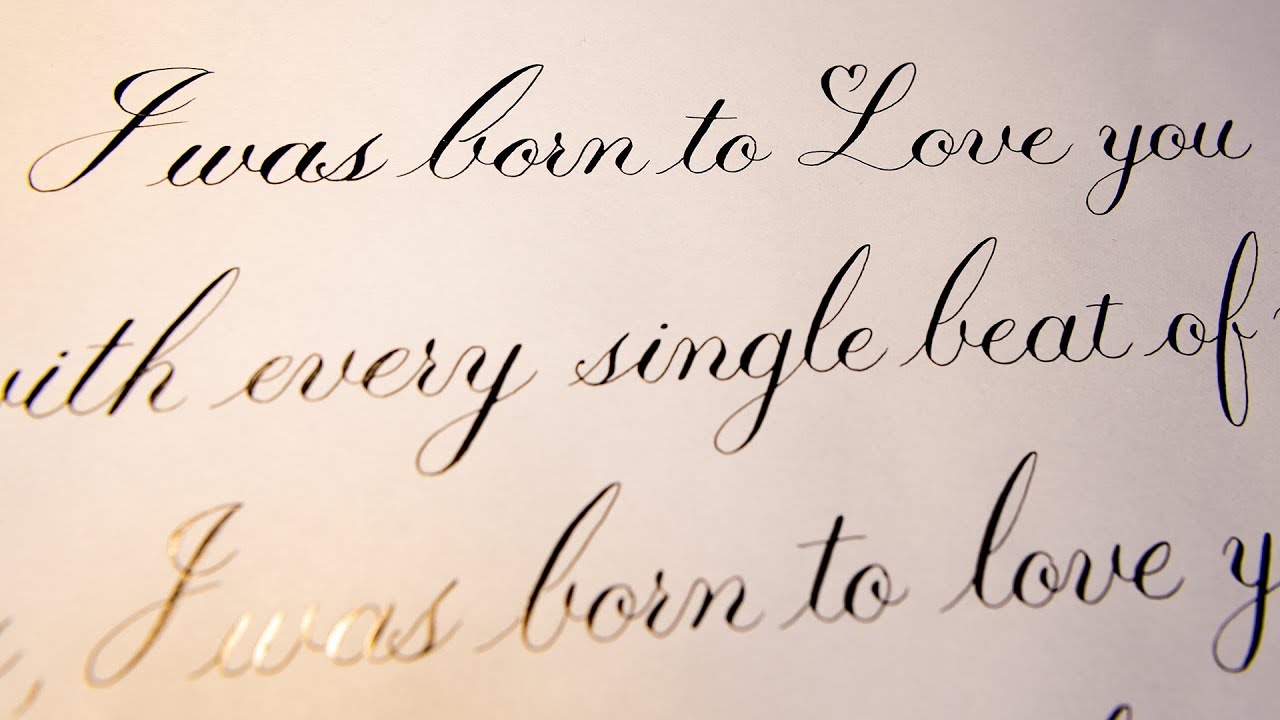 I was born to Love you
with every single beat of
, I was born to love y